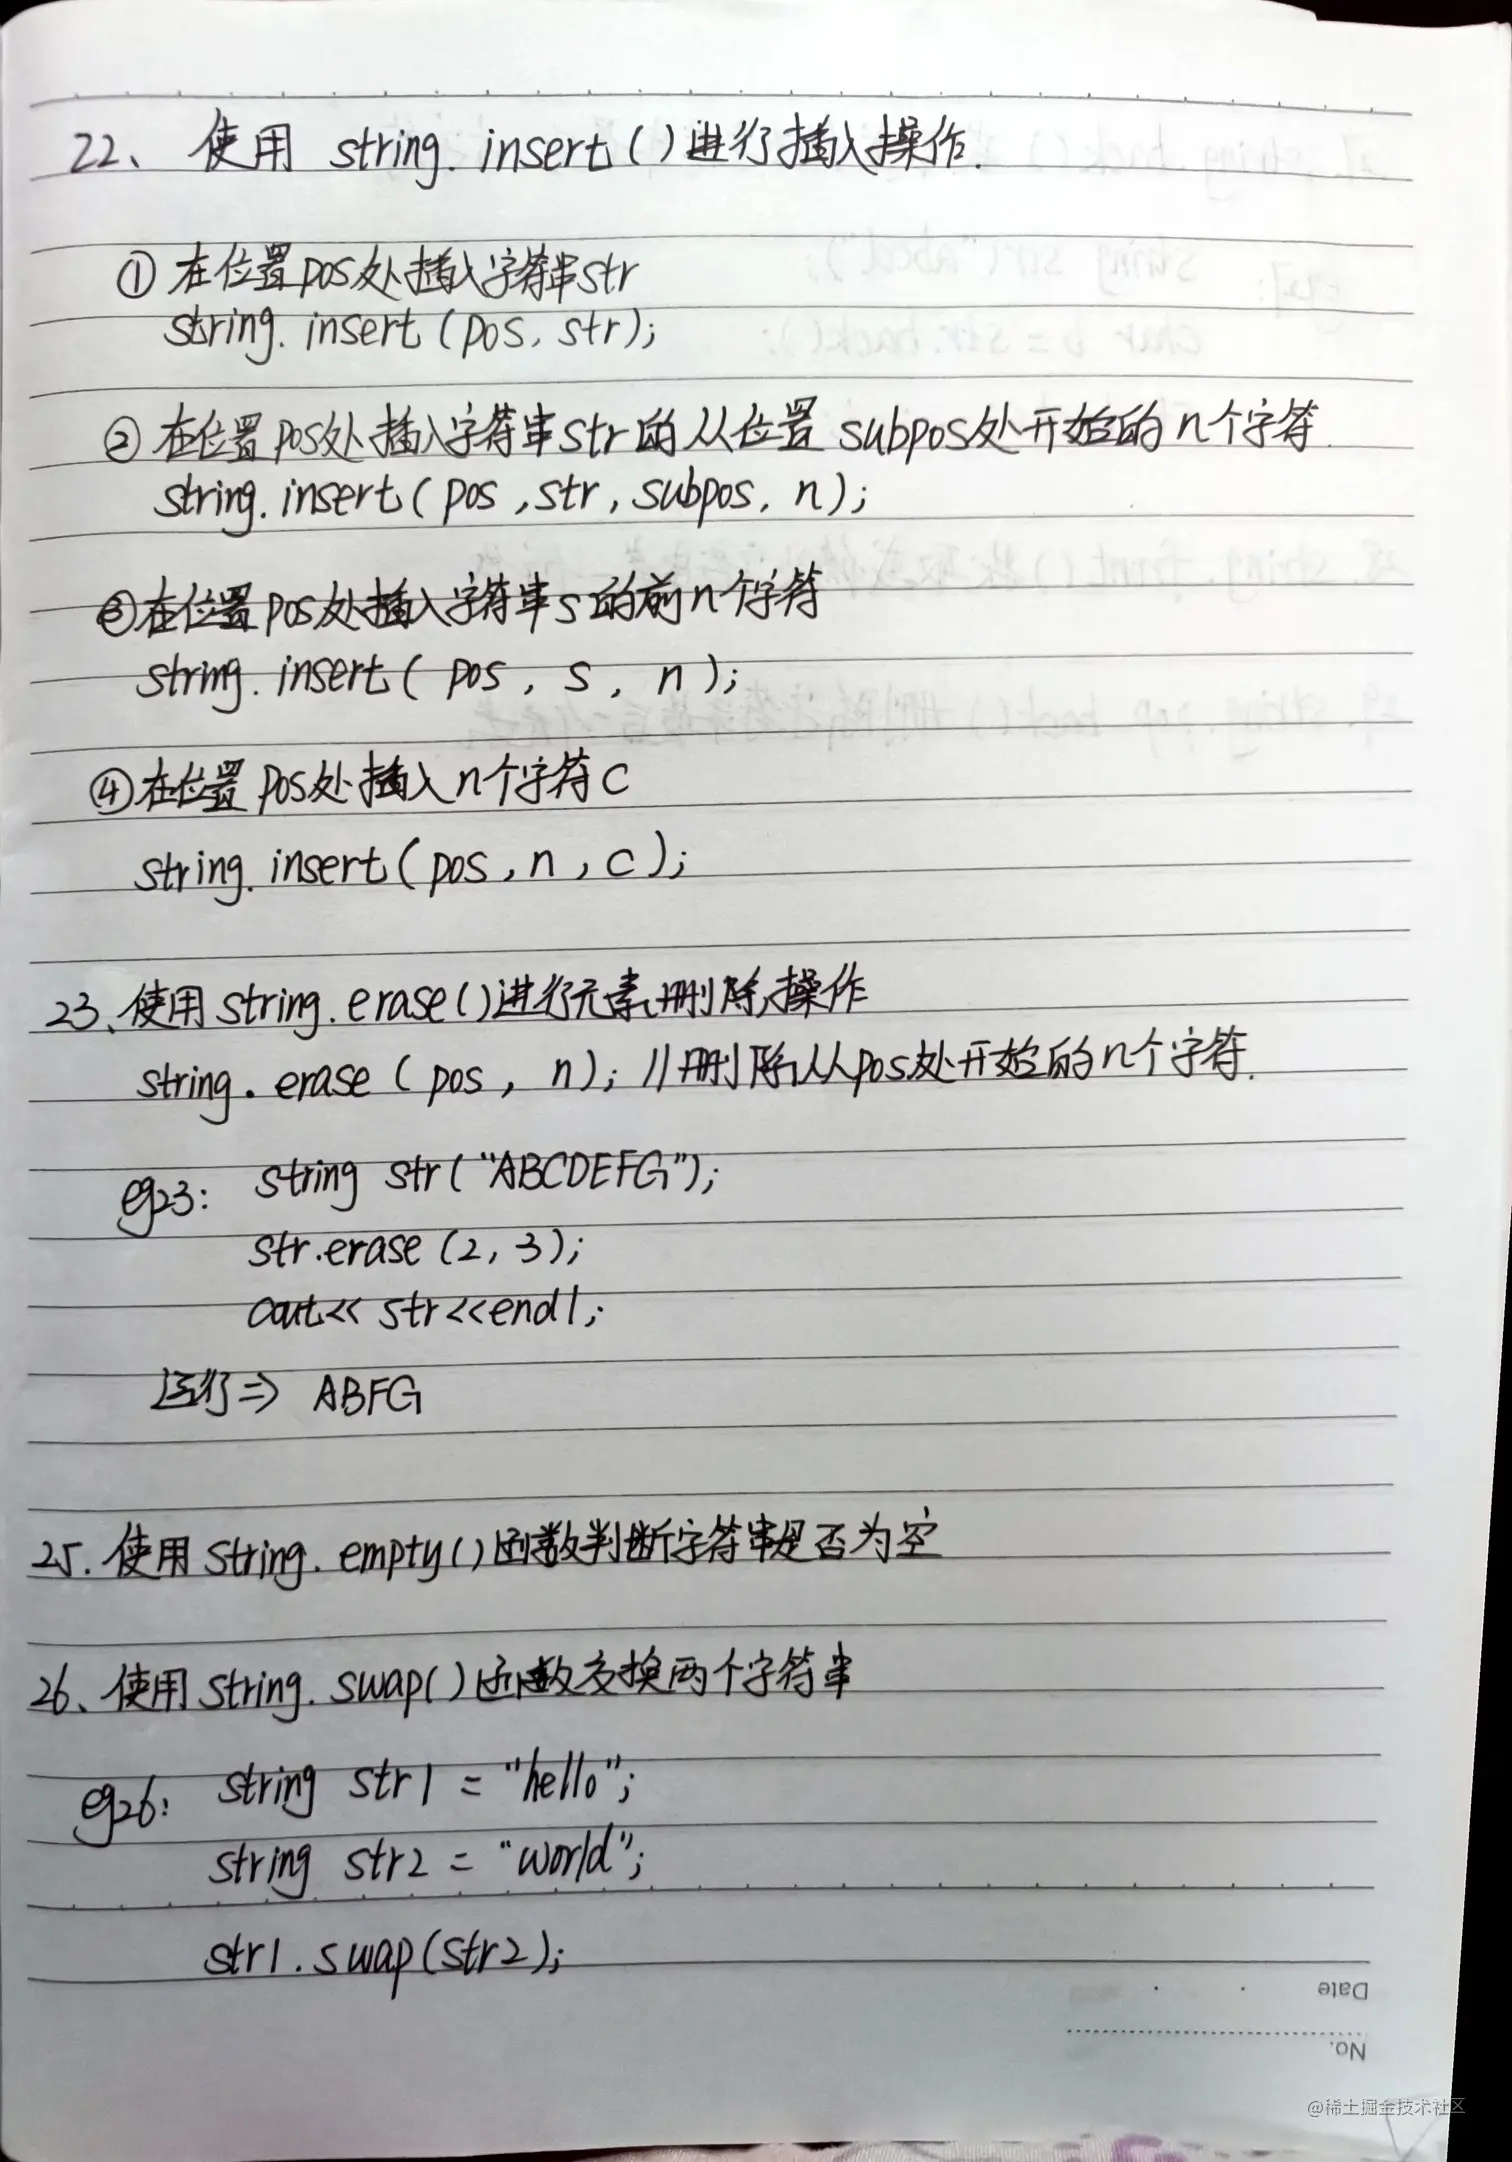 22、使用 string.insert()进行插入操作.
①在位置pos处插入字符串str
string.insert(pos,str);
②在位置pos处插入字符串str的从位置subpos处开始的n个字符.
string.insert(pos,str,subpos,n);
③在位置pos处插入字符串s的前n个字符
string.insert(pos,s,n);
④在位置pos处插入n个字符c
string.insert(pos,n,c);
23、使用string.erase()进行元素删除操作
string.erase(pos,n);//删除从pos处开始的n个字符.
eg23: string str("ABCDEFG");
str.erase(2,3);
cout<<str<<endl;
运行=> ABFG
25.使用string.empty()函数判断字符串是否为空
26、使用string.swap()函数交换两个字符串
eg26: string str1 = "hello";
string str2 = "world";
str1.swap(str2);
Date
No.
@稀土掘金技术社区